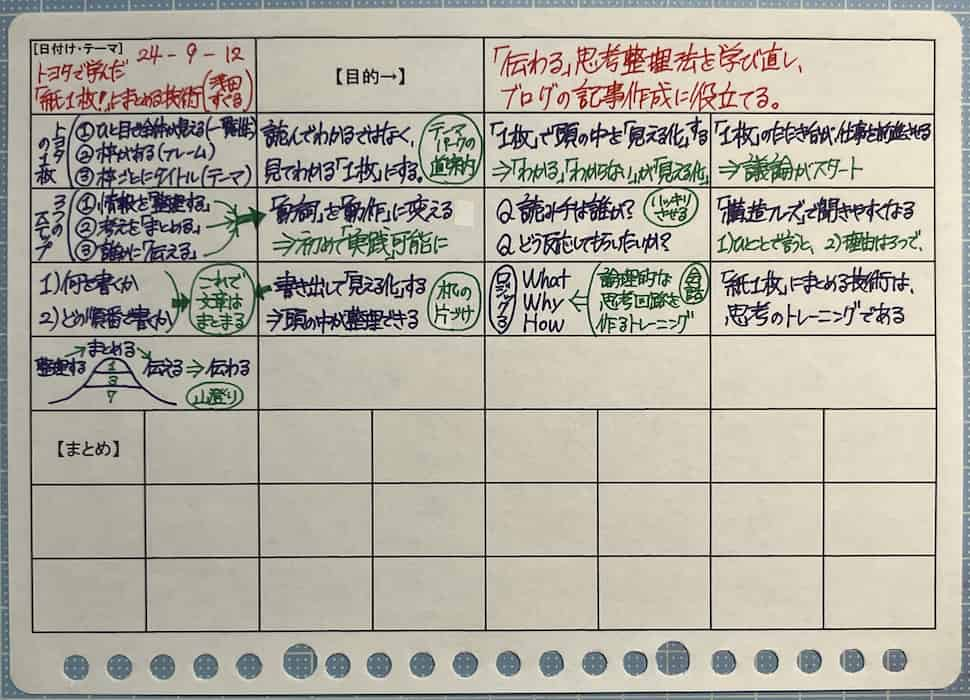 [日付け・テーマ] 24-9-12
トヨタで学んだ
「紙1枚!」にまとめる技術(浅田すぐる)
【目的→】
「伝わる」思考整理法を学び直し、
ブログの記事作成に役立てる。
トヨタの1枚
①ひと目で全体が見える(一覧性)
②枠がある(フレーム)
③枠ごとにタイトル(テーマ)
読んでわかるではなく、
見てわかる「1枚」にする。
テーマパークの道案内
「1枚」で頭の中を「見える化」する
⇒「わかる」「わからない」が「見える化」
「1枚」のたたき台が、仕事を前進させる
⇒議論がスタート
3つのステップ
①情報を「整理する」
②考えを「まとめる」
③誰かに「伝える」
「動詞」を「動作」に変える
⇒初めて「実践」可能に
Q 読み手は誰か?
Q どう反応してもらいたいか?
ハッキリさせる
「構造フレーズ」で聞きやすくなる
1)ひとことで言うと、2)理由は3つで、
1)何を書くか
2)どの順番で書くか
これで文章はまとまる
書き出して「見える化」する
⇒頭の中が整理できる
机の片づけ
ロジック3
What
Why
How
論理的な
思考回路を
作るトレーニング
「紙1枚」にまとめる技術は、
思考のトレーニングである
整理する → まとめる → 伝える ⇒ 伝わる
1
3
7
山登り
【まとめ】